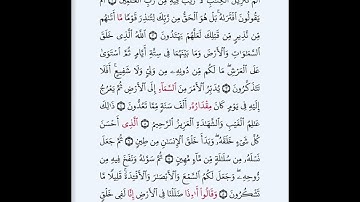 الٓمٓ تَنزِيلُ ٱلْكِتَٰبِ لَا رَيْبَ فِيهِ مِن رَّبِّ ٱلْعَٰلَمِينَ ۝ أَمْ
يَقُولُونَ ٱفْتَرَىٰهُ بَلْ هُوَ ٱلْحَقُّ مِن رَّبِّكَ لِتُنذِرَ قَوْمًا مَّآ أَتَىٰهُم
مِّن نَّذِيرٍ مِّن قَبْلِكَ لَعَلَّهُمْ يَهْتَدُونَ ۝ ٱللَّهُ ٱلَّذِى خَلَقَ
ٱلسَّمَٰوَٰتِ وَٱلْأَرْضَ وَمَا بَيْنَهُمَا فِى سِتَّةِ أَيَّامٍ ثُمَّ ٱسْتَوَىٰ
عَلَى ٱلْعَرْشِ مَا لَكُم مِّن دُونِهِۦ مِن وَلِىٍّ وَلَا شَفِيعٍ أَفَلَا
تَتَذَكَّرُونَ ۝ يُدَبِّرُ ٱلْأَمْرَ مِنَ ٱلسَّمَآءِ إِلَى ٱلْأَرْضِ ثُمَّ يَعْرُجُ
إِلَيْهِ فِى يَوْمٍ كَانَ مِقْدَارُهُۥٓ أَلْفَ سَنَةٍ مِّمَّا تَعُدُّونَ ۝ ذَٰلِكَ
عَٰلِمُ ٱلْغَيْبِ وَٱلشَّهَٰدَةِ ٱلْعَزِيزُ ٱلرَّحِيمُ ۝ ٱلَّذِىٓ أَحْسَنَ
كُلَّ شَىْءٍ خَلَقَهُۥ وَبَدَأَ خَلْقَ ٱلْإِنسَٰنِ مِن طِينٍ ۝ ثُمَّ جَعَلَ
نَسْلَهُۥ مِن سُلَٰلَةٍ مِّن مَّآءٍ مَّهِينٍ ۝ ثُمَّ سَوَّىٰهُ وَنَفَخَ فِيهِ مِن
رُّوحِهِۦ وَجَعَلَ لَكُمُ ٱلسَّمْعَ وَٱلْأَبْصَٰرَ وَٱلْأَفْـِٔدَةَ قَلِيلًا مَّا
تَشْكُرُونَ ۝ وَقَالُوٓا۟ أَءِذَا ضَلَلْنَا فِى ٱلْأَرْضِ إِنَّا لَفِى خَلْقٍ